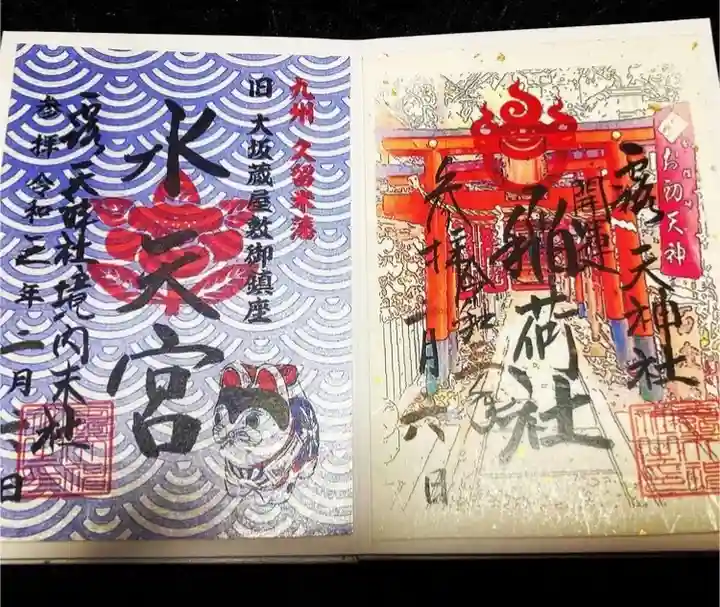 お初天神
露天神社
開運
稲荷社
参拝
二月六日
九州 久留米藩
旧 大坂蔵屋敷御鎮座
水天宮
露天神社境内末社
参拝令和三年二月六日